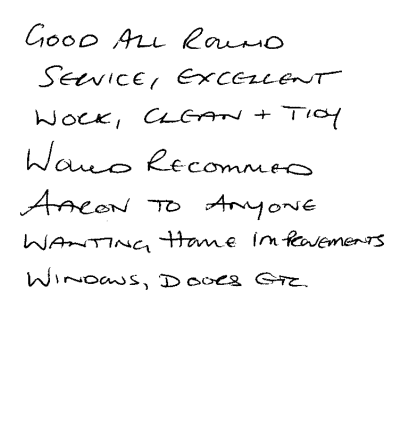 GOOD ALL ROUND
SERVICE, EXCELLENT
WORK, CLEAN + TIDY
WOULD RECOMMED
AARON TO ANYONE
WANTING Home ImPROVEMENTS
WINDOWS, DOORS ETC.